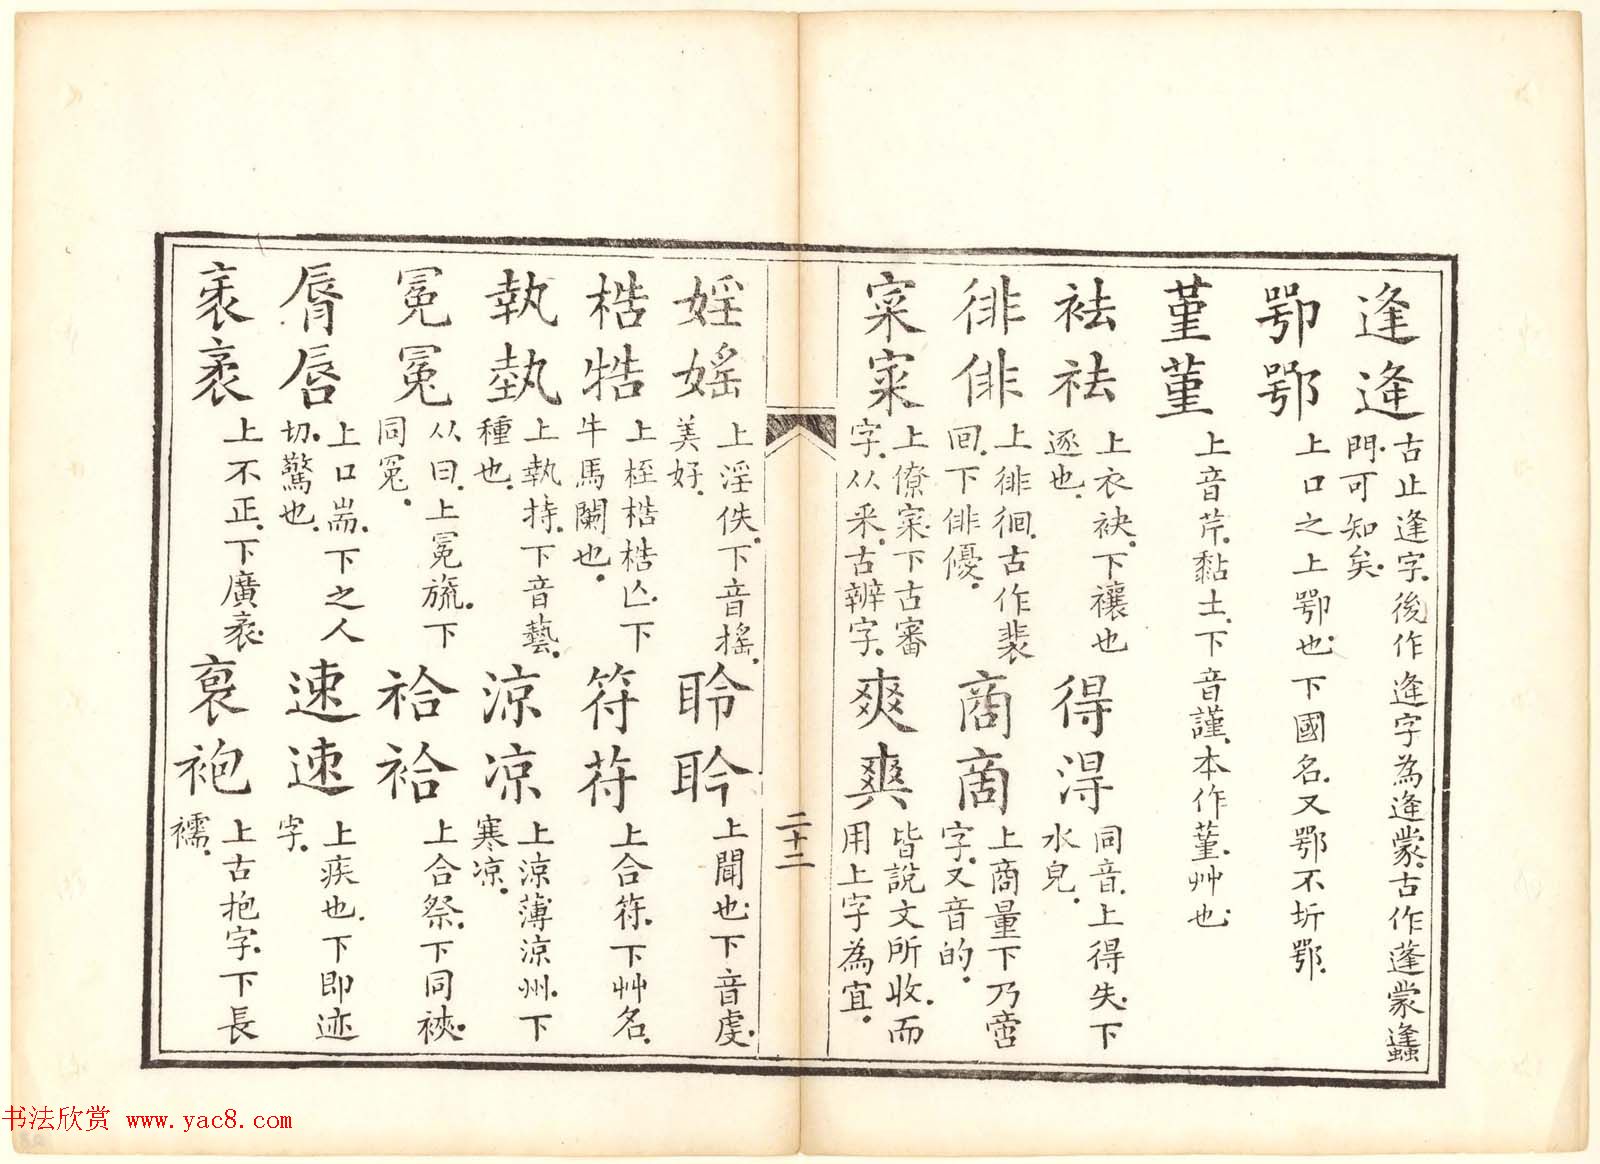 逢逄
古止逢字後作逄字為逄蒙古作蓬蒙蠭
門可知矣
咢鄂
上口之上咢也下國名又鄂不圻鄂
堇菫
上音芹黏土下音謹本作菫艸也
袪祛
上衣袂下禳也
逐也
得淂
同音上得失下
水皃
徘俳
上徘徊古作裴
回下俳優
商啇
上商量下乃啻
字又音的
寀寀
上僚寀下古審
字从釆古辨字
爽爽
皆說文所收而
用上字為宜
二十二
婬媱
上淫佚下音搖
美好
聆聆
上聞也下音虔
梏牿
上桎梏梏亾下
牛馬闌也
符苻
上合符下艸名
執埶
上執持下音藝
種也
涼凉
上涼薄涼州下
寒凉
冕冤
从曰上冕旒下
同冤
祫袷
上合祭下同裌
脣唇
上口耑下之人
切驚也
速速
上疾也下即迹
字
袤袤
上不正下廣袤
裒袍
上古抱字下長
襦
书法欣赏 www.yac8.com